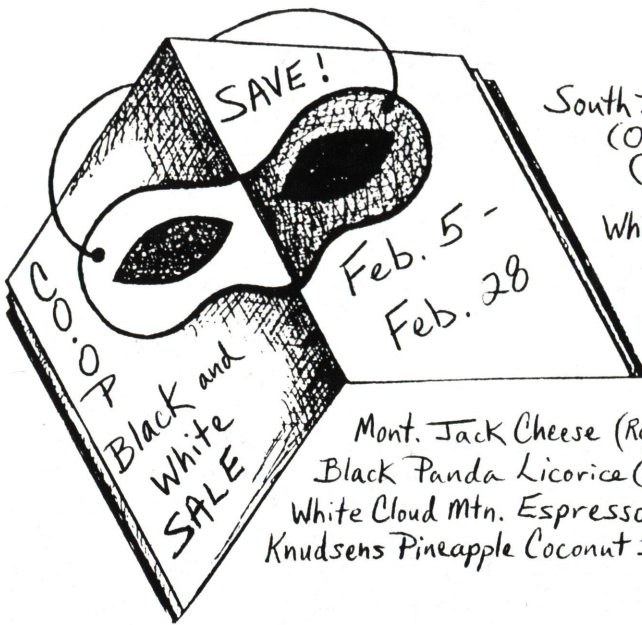 SAVE!
CO.OP
Black and
White
SALE
Feb. 5 -
Feb. 28
South
(O
(
Wh
Mont. Jack Cheese (R
Black Panda Licorice (
White Cloud Mtn. Espresso
Knudsens Pineapple Coconut